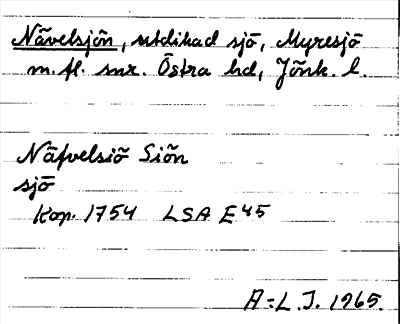 Nävelsjön, utdikad sjö, Myresjö
m. fl. snr. Östra hd, Jönk. l.
Näfvelsiö Siön
sjö
Kop. 1754 LSA E45
A-L. J. 1965.